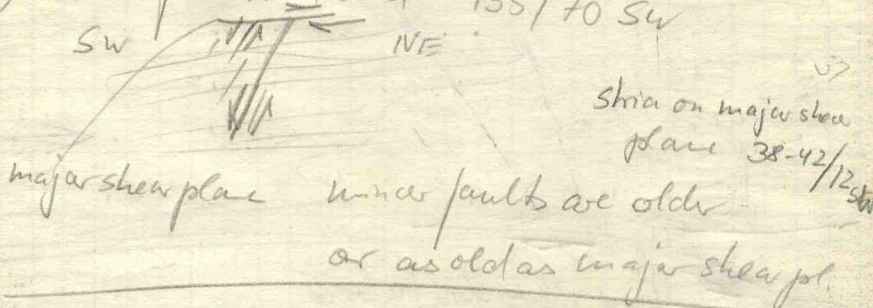 135/70 SW
SW NE
stria on major shear
plane 38-42/12 SW
major shear plane minor faults are older
or as old as major shear pl.